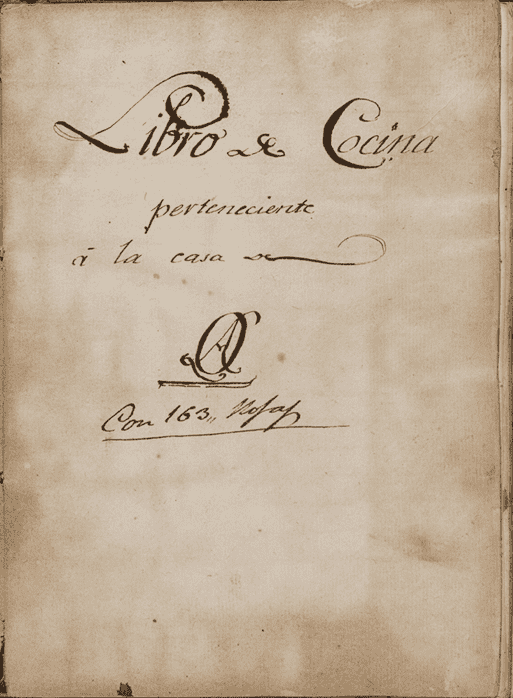 Libro de Cocina
perteneciente
à la casa de
Con 163,,